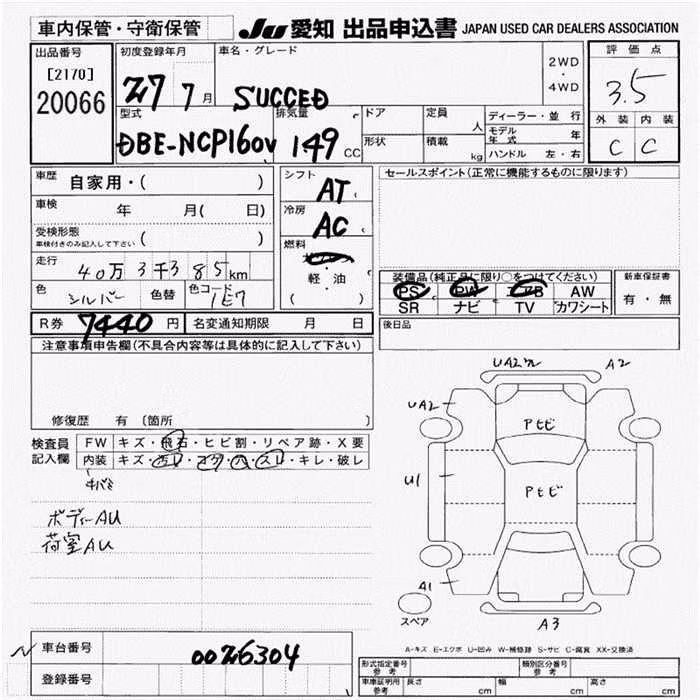 車内保管・守衛保管
JU 愛知 出品申込書 JAPAN USED CAR DEALERS ASSOCIATION
出品番号 初度登録年月 車名・グレード 2WD・4WD 評価点
[2170]
20066 27 7月 SUCCEED 3.5
型式 排気量 ドア 定員 人 ディーラー・並行 外装 内装
DBE-NCP160V 149 CC 形状 積載 kg モデル年式 年 C C
ハンドル 左・右
車歴 自家用・( ) シフト AT セールスポイント(正常に機能するものに限ります)
車検 年 月( 日) 冷房 AC
受検形態 ( )
車検付きのみ記入して下さい
燃料 ガソリン
走行 40万3千385km 軽・油
( )
装備品(純正品に限り○をつけてください) 新車保証書
PS PW エアB AW 有・無
SR ナビ TV カワシート
色 シルバー 色替 色コード 1E7
R券 7440円 名変通知期限 月 日 後日品
注意事項申告欄(不具合内容等は具体的に記入して下さい)
修復歴 有 〔箇所 〕
検査員記入欄 FW キズ・飛石・ヒビ割・リペア跡・X要
内装 キズ・汚レ・コゲ・穴・スレ・キレ・破レ
ボディーAU
荷室AU
A2
UA2
Pセビ
U1
Pセビ
A1
スペア
A3
A-キズ E-エクボ U-凹み W-補修跡 S-サビ C-腐食 XX-交換済
車台番号 0026304
登録番号
形式指定番号 参考 類別区分番号 参考
車庫証明用 参考 長さ cm 幅 cm 高さ cm